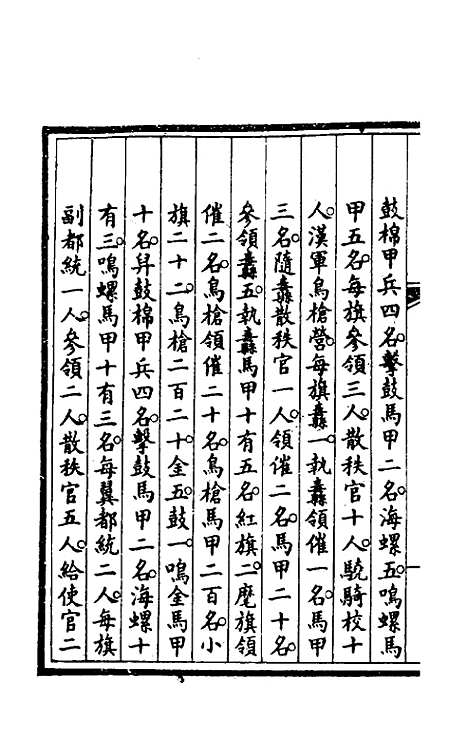 鼓棉甲兵四名擊鼓馬甲二名海螺五鳴螺馬
甲五名每旗參領三人散秩官十人驍騎校十
人漢軍鳥槍營每旗纛一執纛領催一名馬甲
三名隨纛散秩官一人領催二名馬甲二十名
參領纛五執纛馬甲十有五名紅旗二麾旗領
催二名鳥槍領催二十名鳥槍馬甲二百名小
旗二十二鳥槍二百二十金五鼓一鳴金馬甲
十名舁鼓棉甲兵四名擊鼓馬甲二名海螺十
有三鳴螺馬甲十有三名每翼都統二人每旗
副都統一人參領二人散秩官五人給使官二